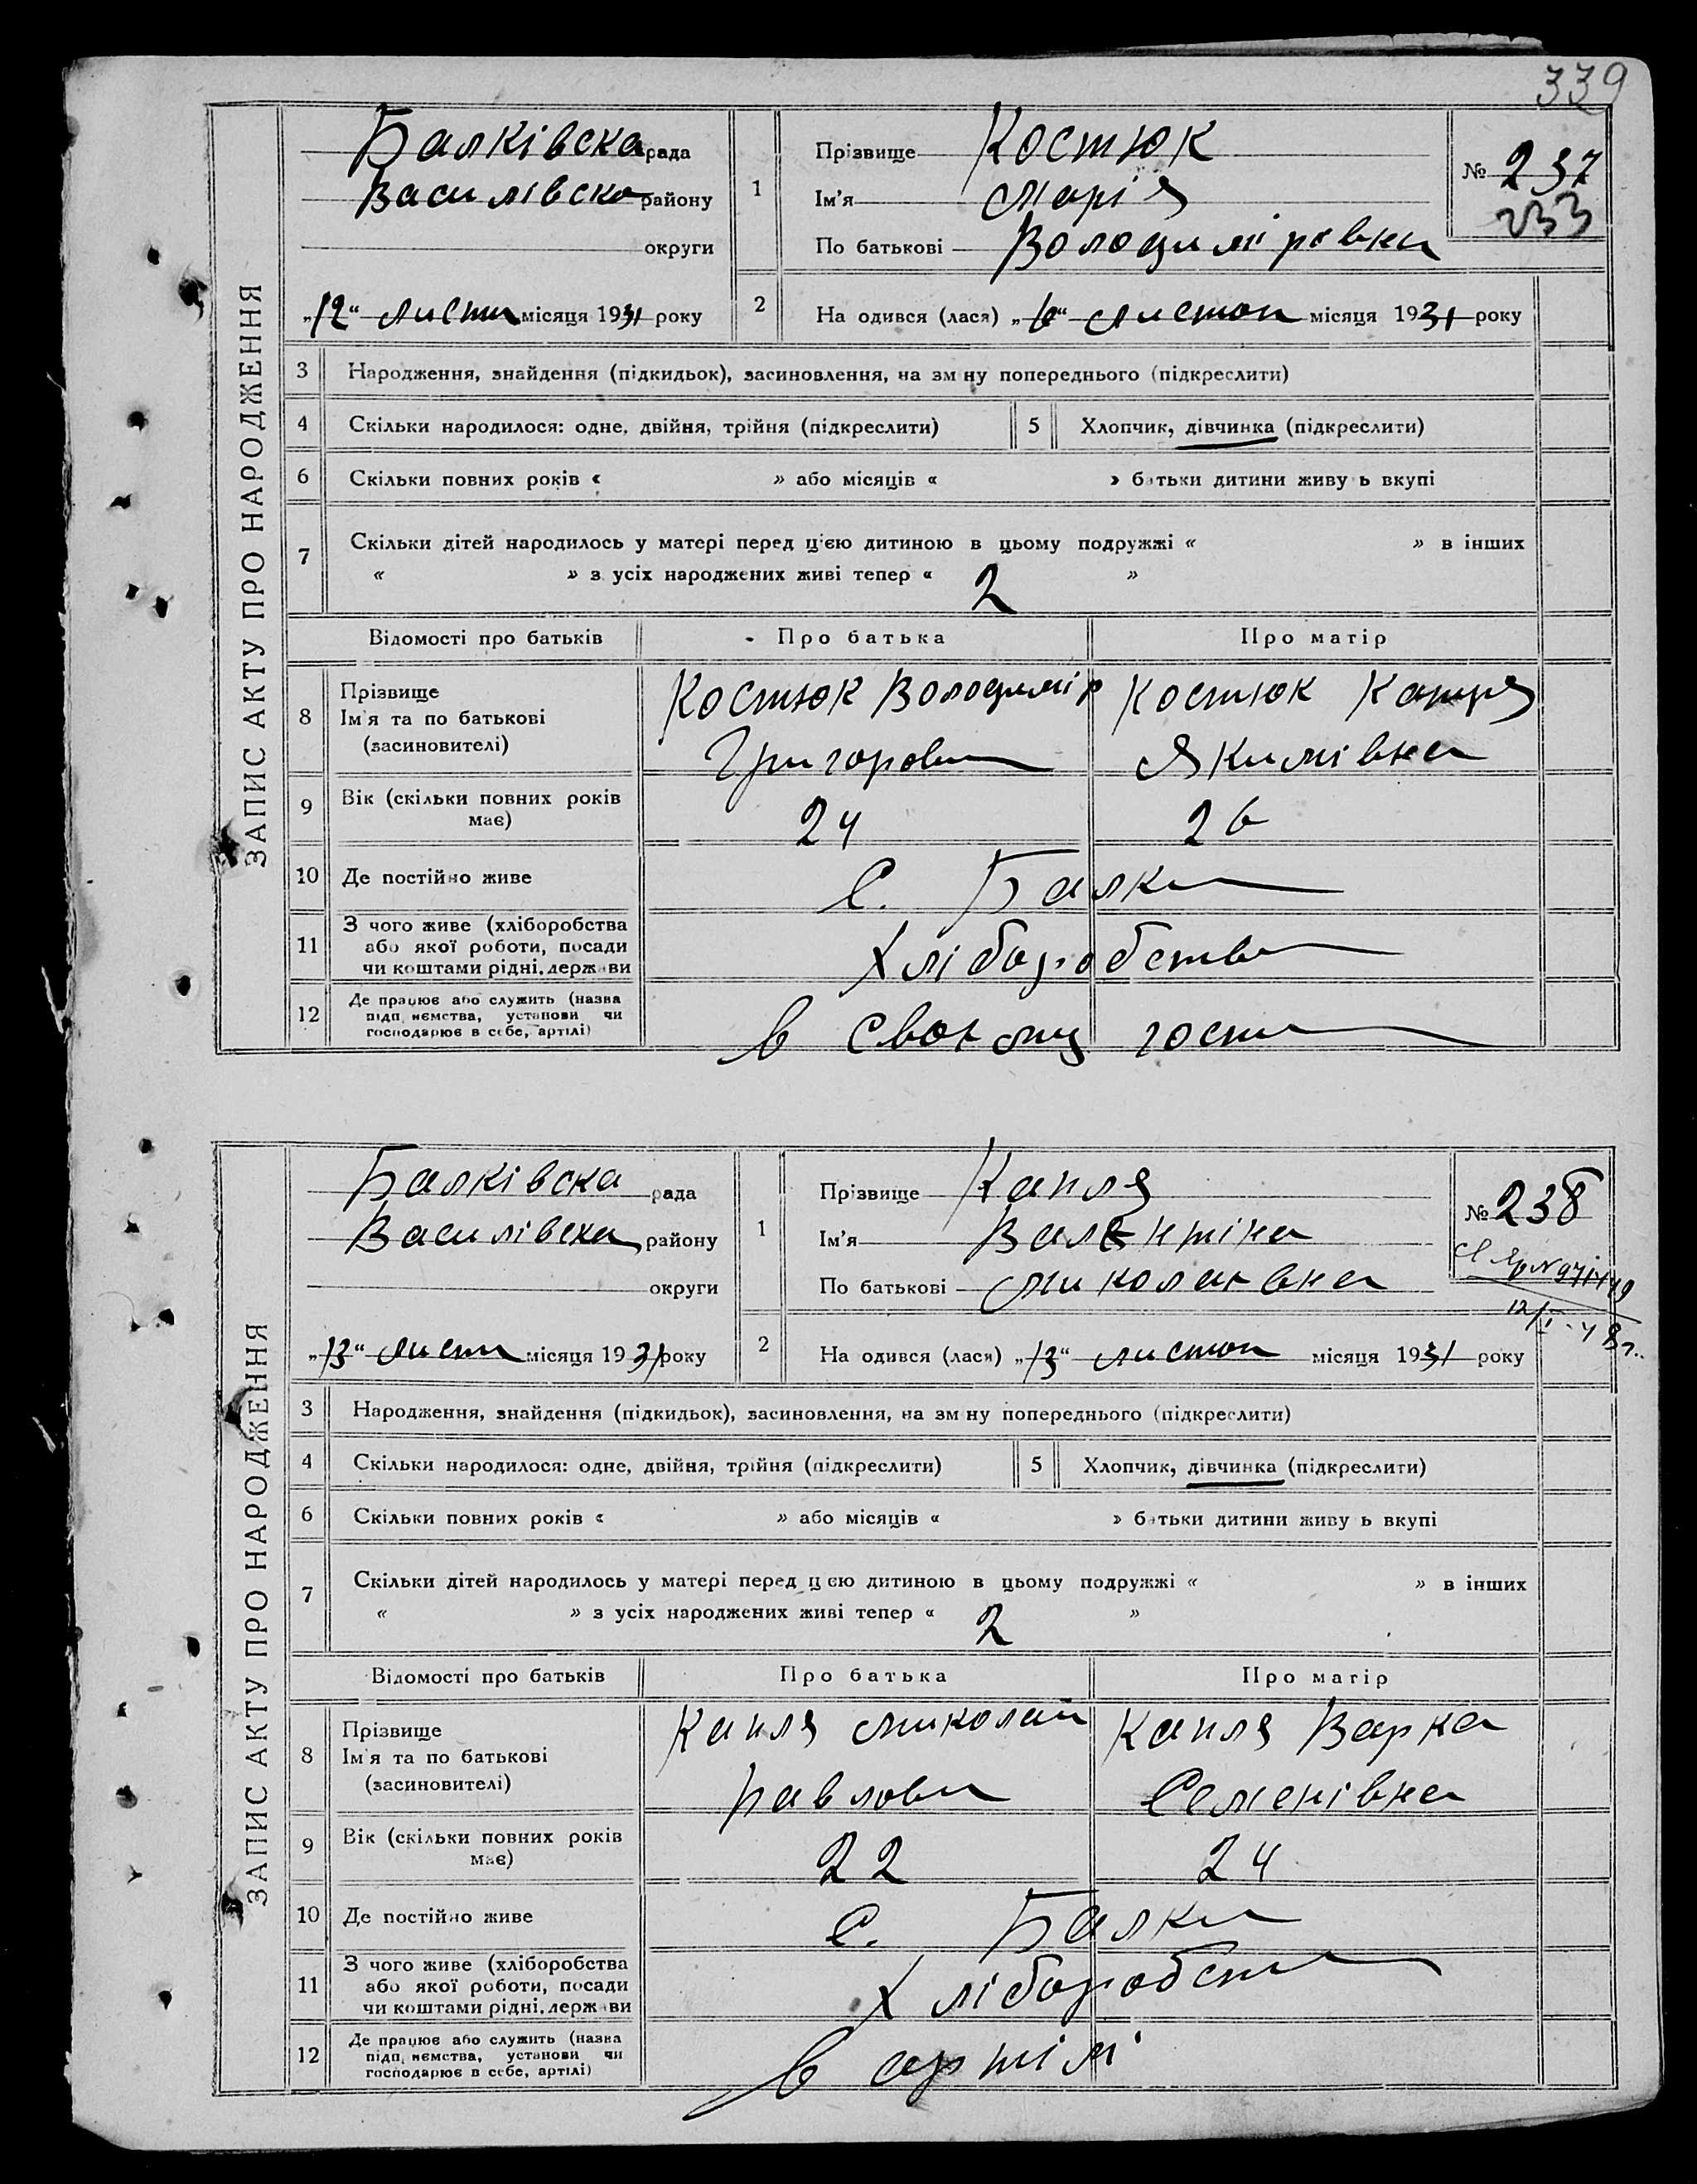 339
ЗАПИС АКТУ ПРО НАРОДЖЕННЯ
Балківска рада
Василівска району
округи
„12“ листи місяця 1931 року
1 Прізвище Костюк
Ім'я Марія
По батькові Володиміровна
№ 237
233
2 На одився (лася) „6“ листоп місяця 1931 року
3 Народження, знайдення (підкидьок), засиновлення, на зм ну попереднього (підкреслити)
4 Скільки народилося: одне, двійня, трійня (підкреслити) 5 Хлопчик, дівчинка (підкреслити)
6 Скільки повних років « » або місяців « » батьки дитини живу ь вкупі
7 Скільки дітей народилось у матері перед цією дитиною в цьому подружжі « » в інших
« » з усіх народжених живі тепер « 2 »
Відомості про батьків Про батька Про матір
8 Прізвище
Ім'я та по батькові
(засиновителі)
Костюк Володимір
Григорови
Костюк Катря
Якимівна
9 Вік (скільки повних років
має)
24 26
10 Де постійно живе с. Балки
11 З чого живе (хліборобства
або якої роботи, посади
чи коштами рідні, держави
Хліборобства
12 Де працює або служить (назва
підп иємства, установи чи
господарює в себе, артілі)
в своєму госп
ЗАПИС АКТУ ПРО НАРОДЖЕННЯ
Балківска рада
Василівска району
округи
„13“ листи місяця 1931 року
1 Прізвище Капля
Ім'я Валентіна
По батькові Миколаєвна
№ 238
12/I-48г.
2 На одився (лася) „13“ листоп місяця 1931 року
3 Народження, знайдення (підкидьок), засиновлення, на зм ну попереднього (підкреслити)
4 Скільки народилося: одне, двійня, трійня (підкреслити) 5 Хлопчик, дівчинка (підкреслити)
6 Скільки повних років « » або місяців « » батьки дитини живу ь вкупі
7 Скільки дітей народилось у матері перед ц єю дитиною в цьому подружжі « » в інших
« » з усіх народжених живі тепер « 2 »
Відомості про батьків Про батька Про матір
8 Прізвище
Ім'я та по батькові
(засиновителі)
Капля Миколай
Павлови
Капля Варка
Семенівна
9 Вік (скільки повних років
має)
22 24
10 Де постійно живе с. Балки
11 З чого живе (хліборобства
або якої роботи, посади
чи коштами рідні, держ ви
Хліборобст
12 Де працює або служить (назва
підп иємства, установи чи
господарює в себе, артілі)
в артілі